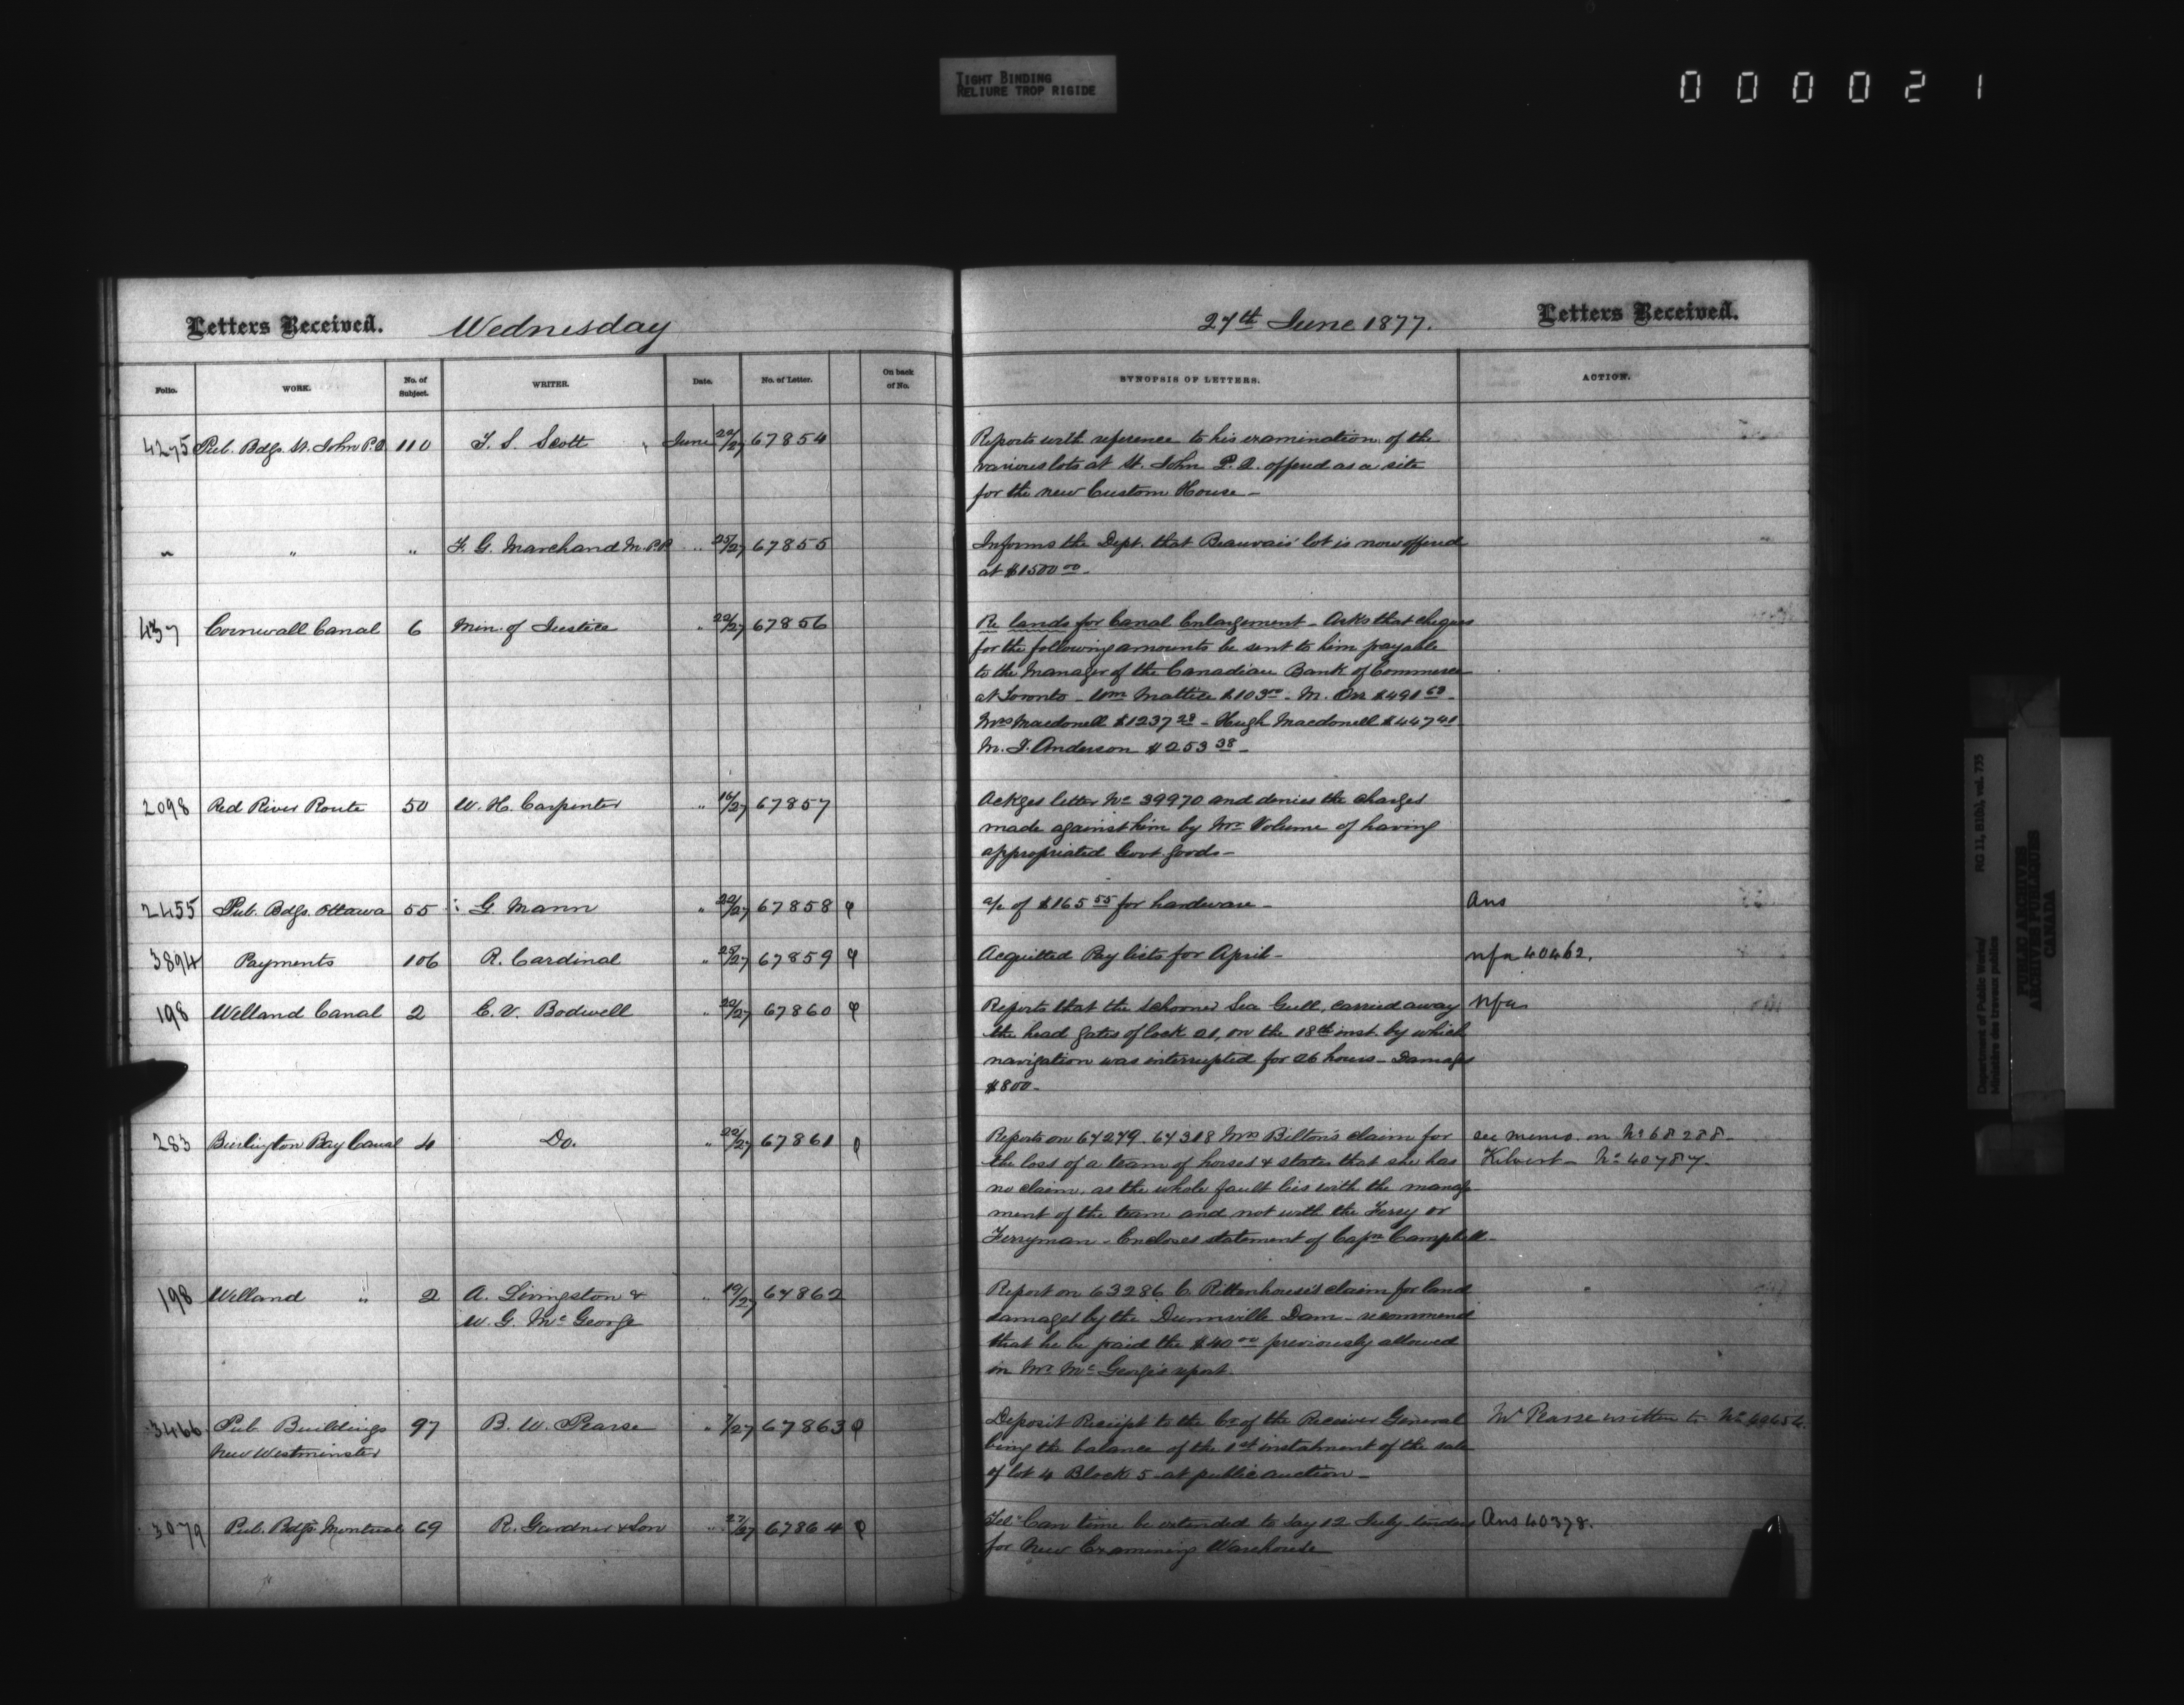 TIGHT BINDING
RELIURE TROP RIGIDE
000021
Letters Received. Wednesday 27th June 1877. Letters Received.
Folio. WORK. No. of Subject. WRITER. Date. No. of Letter. On back of No. SYNOPSIS OF LETTERS. ACTION.
4275 Pub. Bdgs. St. John P.Q. 110 T. S. Scott June 22/27 67854 Reports with reference to his examination of the
various lots at St. John P.Q. offered as a site
for the new Custom House -
" " " F. G. Marchand M.P.P. " 25/27 67855 Informs the Dept. that Beauvais' lot is now offered
at $1500 00 -
437 Cornwall Canal 6 Min. of Justice " 22/27 67856 Re lands for Canal Enlargement - Asks that cheques
for the following amounts be sent to him payable
to the Manager of the Canadian Bank of Commerce
at Toronto - Wm Mattice $103 00 - M. Orr $491 69 -
Mrs Macdonell $1237 29 - Hugh Macdonell $447 41
M. J. Anderson $253 38 -
2098 Red River Route 50 W. H. Carpenter " 16/27 67857 Ackges letter No 39970 and denies the charges
made against him by Mr Volume of having
appropriated Govt. goods -
2455 Pub. Bdgs. Ottawa 55 G. Mann " 22/27 67858 φ a/c of $165 55 for hardware - Ans
3894 Payments 106 R. Cardinal " 25/27 67859 φ Acquitted Pay lists for April - nfa 40462.
198 Welland Canal 2 C. V. Bodwell " 22/27 67860 φ Reports that the Schooner Sea Gull, carried away nfa
the head gates of lock 21, on the 18th inst. by which
navigation was interrupted for 26 hours - Damages
$800 -
283 Burlington Bay Canal 4 Do. " 22/27 67861 φ Reports on 67279. 67318 Mrs Bilton's claim for see memo. on No 68288 -
the loss of a team of horses & states that she has Kilvert - No 40787 -
no claim, as the whole fault lies with the manage
ment of the team and not with the Ferry or
Ferryman - Encloses statement of Capn Campbell -
198 Welland " 2 A. Livingston & " 19/27 67862 Report on 63286 C. Rittenhouse's claim for land
W. G. Mc George damages by the Dunnville Dam - recommend
that he be paid the $40 00 previously allowed
in Mr Mc George's report.
3466 Pub. Buildings 97 B. W. Pearse " 7/27 67863 φ Deposit Receipt to the Cr. of the Receiver General Mr Pearse written to No
New Westminster being the balance of the 1st instalment of the sale
of lot 4 Block 5 at public auction -
3079 Pub. Bdgs. Montreal 69 R. Gardner & Son " 27/27 67864 φ Tel. Can time be extended to say 12 July tenders Ans 40378.
for New Examining Warehouse
Department of Public Works/ RG 11, B1(b), vol. 735
Ministère des travaux publics
PUBLIC ARCHIVES
ARCHIVES PUBLIQUES
CANADA